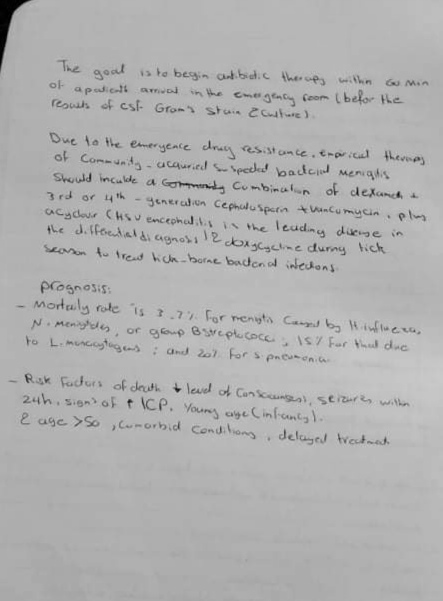 The goal is to begin antibiotic therapy within 60 min
of a patient's arrival in the emergency room (befor the
results of CSF Gram's stain & culture).
Due to the emeryence drug resistance, emprical therapy
of Community-acquried suspected bactcial menigitis
should inculde a Combination of dexameth +
3rd or 4th - generation Cephalosporin + Vancomycin, plus
acyclovir (HSV encephalitis is the leading disease in
the differential diagnosis) & doxycycline during tick
season to treat tick-borne bacterial infections.
prognosis:
- Mortality rate is 3-7% for menigitis Caused by H.influenza,
N. Menigitides, or group B streptococci, 15% for that due
to L. monocytogens ; and 20% for S. pneumonia
- Risk Factors of death ↓ level of Consciousness, seizures within
24h, signs of ↑ ICP, Young age (infancy).
& age >50, comorbid conditions, delayed treatment